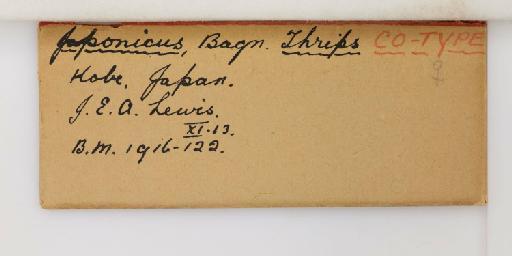 japonicus, Bagn. Thrips CO-TYPE
♀
Kobe, Japan.
J. E. A. Lewis.
XI.13.
B.M. 1916-122.